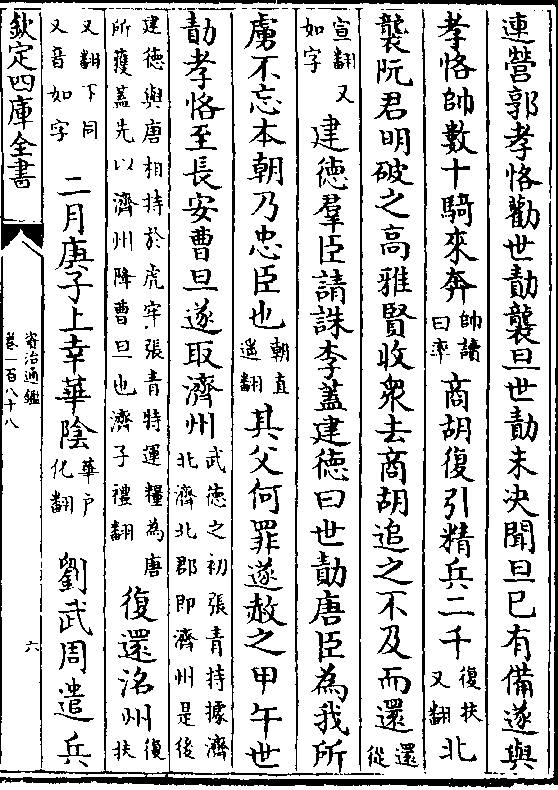 連營郭孝恪勸世勣襲旦世勣未決聞旦已有備遂與
孝恪帥數十騎來奔帥讀曰率商胡復引精兵二千復扶又翻北
襲阮君明破之髙雅賢收衆去商胡追之不及而還還從
宣翻又如字建徳羣臣請誅李蓋建徳曰世勣唐臣為我所
虜不忘本朝乃忠臣也朝直遥翻其父何罪遂赦之甲午世
勣孝恪至長安曹旦遂取濟州武徳之初張青特據濟北濟北郡即濟州是後
建徳與唐相持於虎牢張青特運糧為唐所獲蓋先以濟州降曹旦也濟子禮翻復還洺州復扶
又翻下同又音如字二月庚子上幸華隂華户化翻劉武周遣兵
欽定四庫全書
資治通鑑
卷一百八十八
六